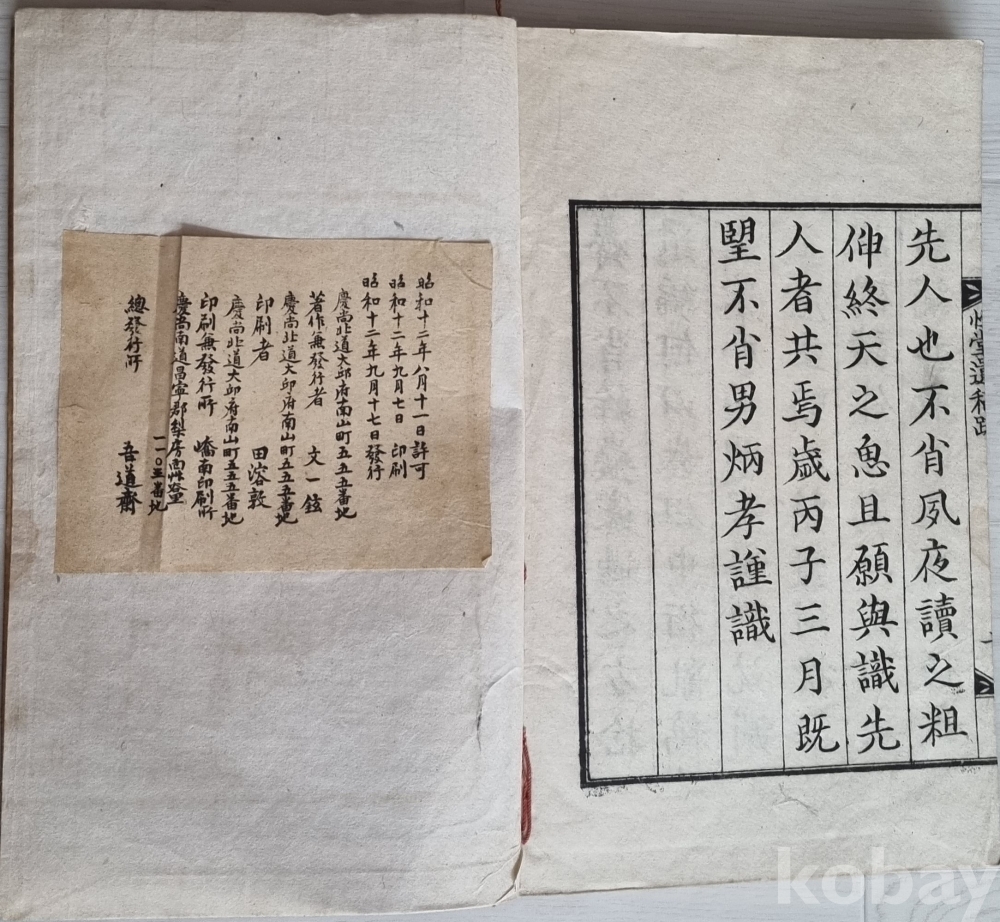 堂遺稿跋
先人也不省夙夜讀之粗
伸終天之且願與識先
人者共焉歲丙子三月既
望不省男炳孝謹識
昭和十二年八月十一日許可
昭和十二年九月七日 印刷
昭和十二年九月十七日發行
慶尚北道大邱府南山町五五五番地
著作兼發行者 文一鉉
慶尚北道大邱府南山町五五五番地
印刷者 田溶敦
慶尚北道大邱府南山町五五五番地
印刷兼發行所 嶠南印刷所
慶尚南道昌寧郡梨房面
一一〇五番地
總發行所 吾道齋
kobay